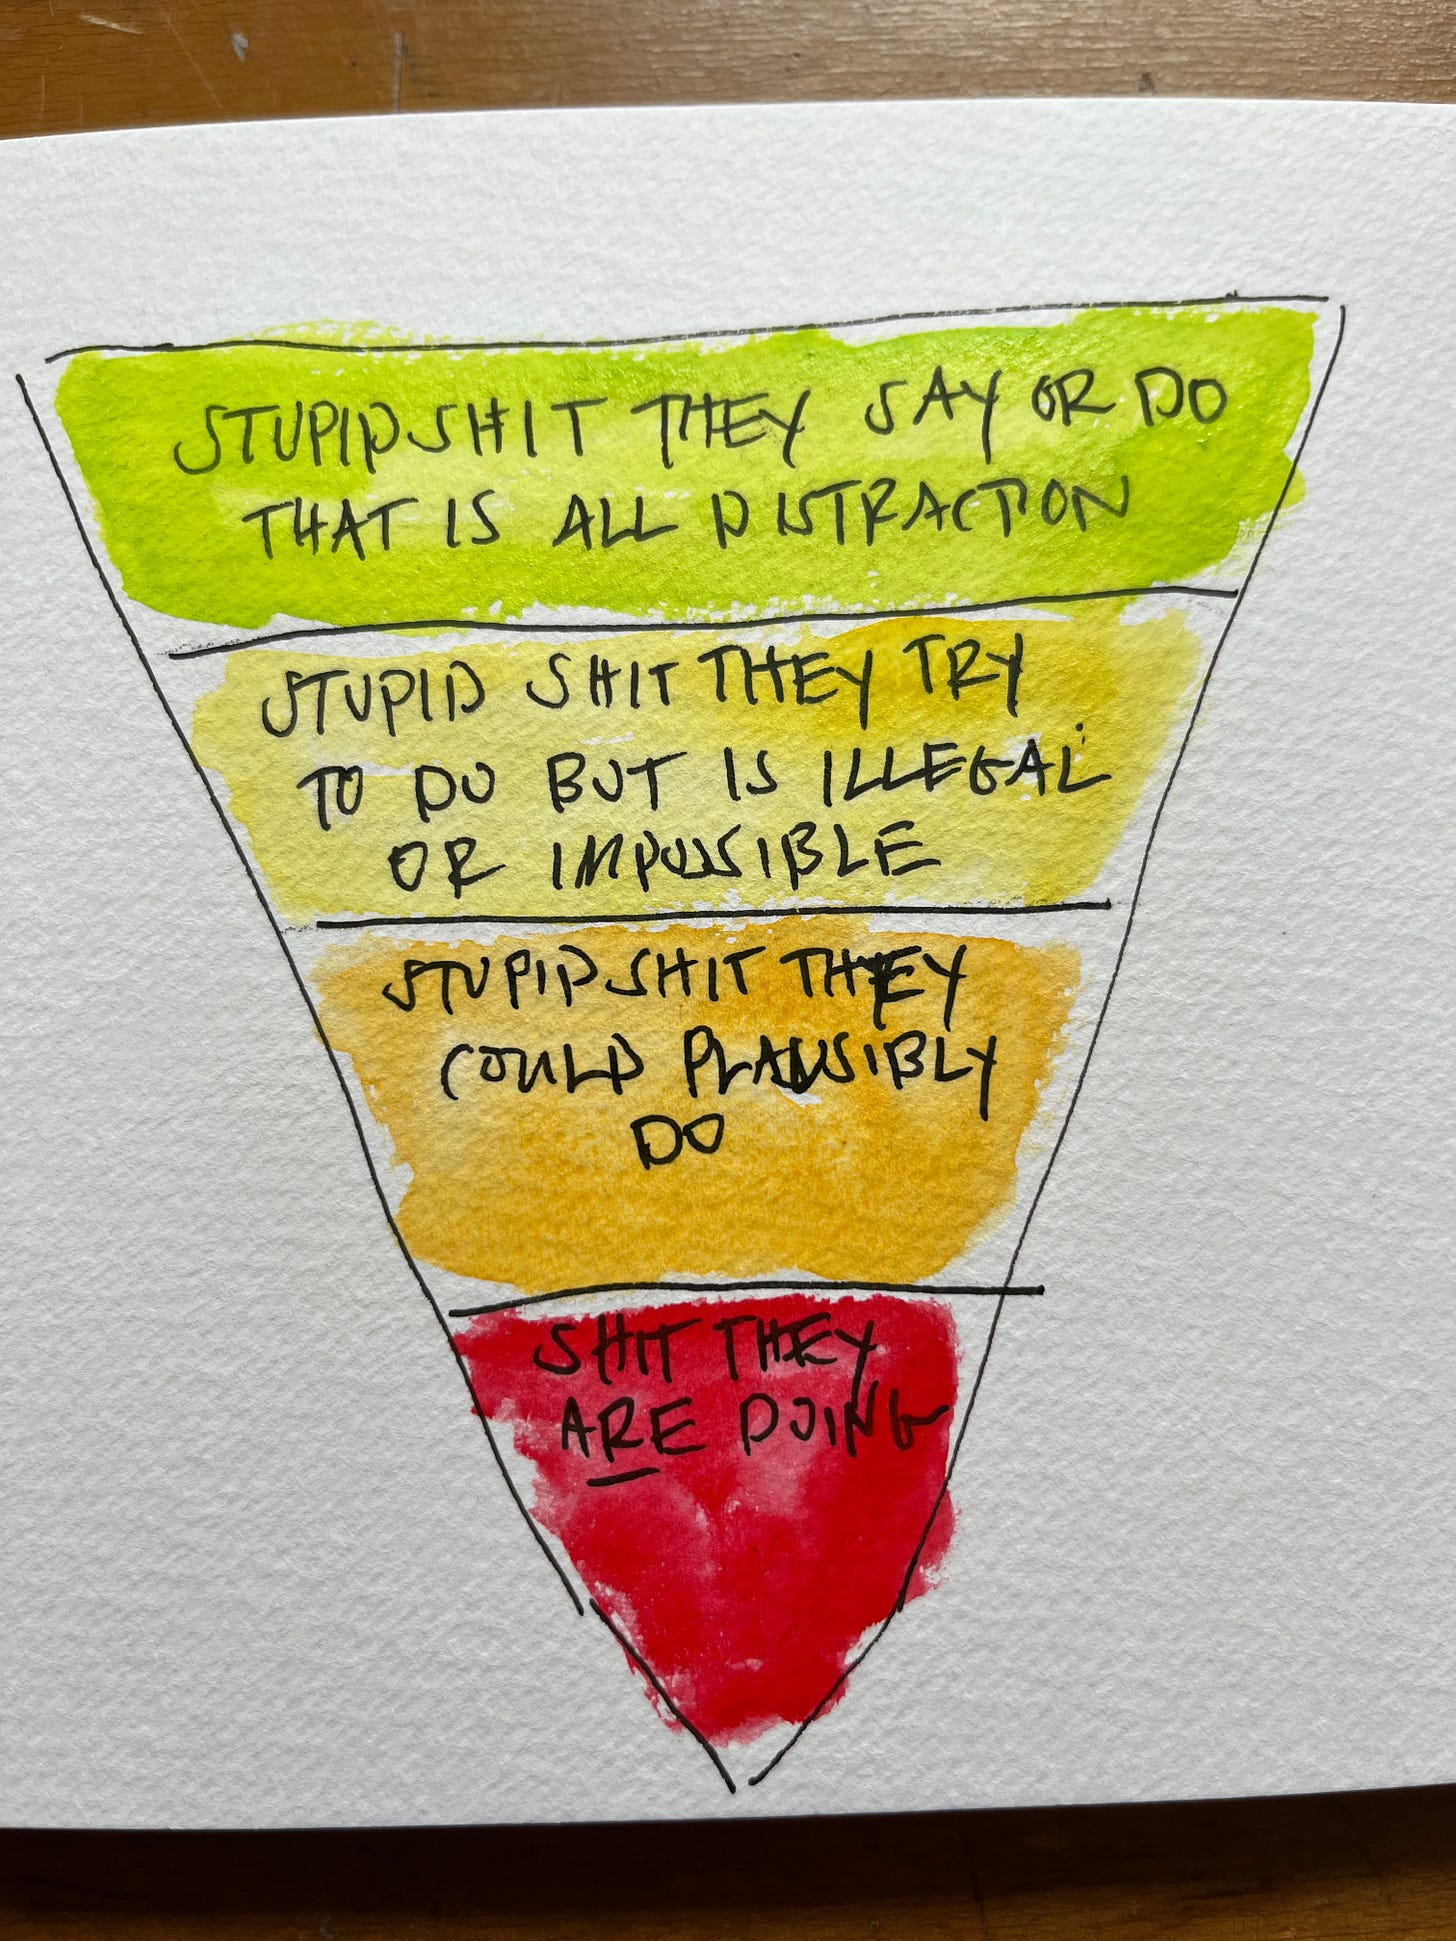 STUPID SHIT THEY SAY OR DO
THAT IS ALL DISTRACTION
STUPID SHIT THEY TRY
TO DO BUT IS ILLEGAL
OR IMPOSSIBLE
STUPID SHIT THEY
COULD PLAUSIBLY
DO
SHIT THEY
ARE DOING